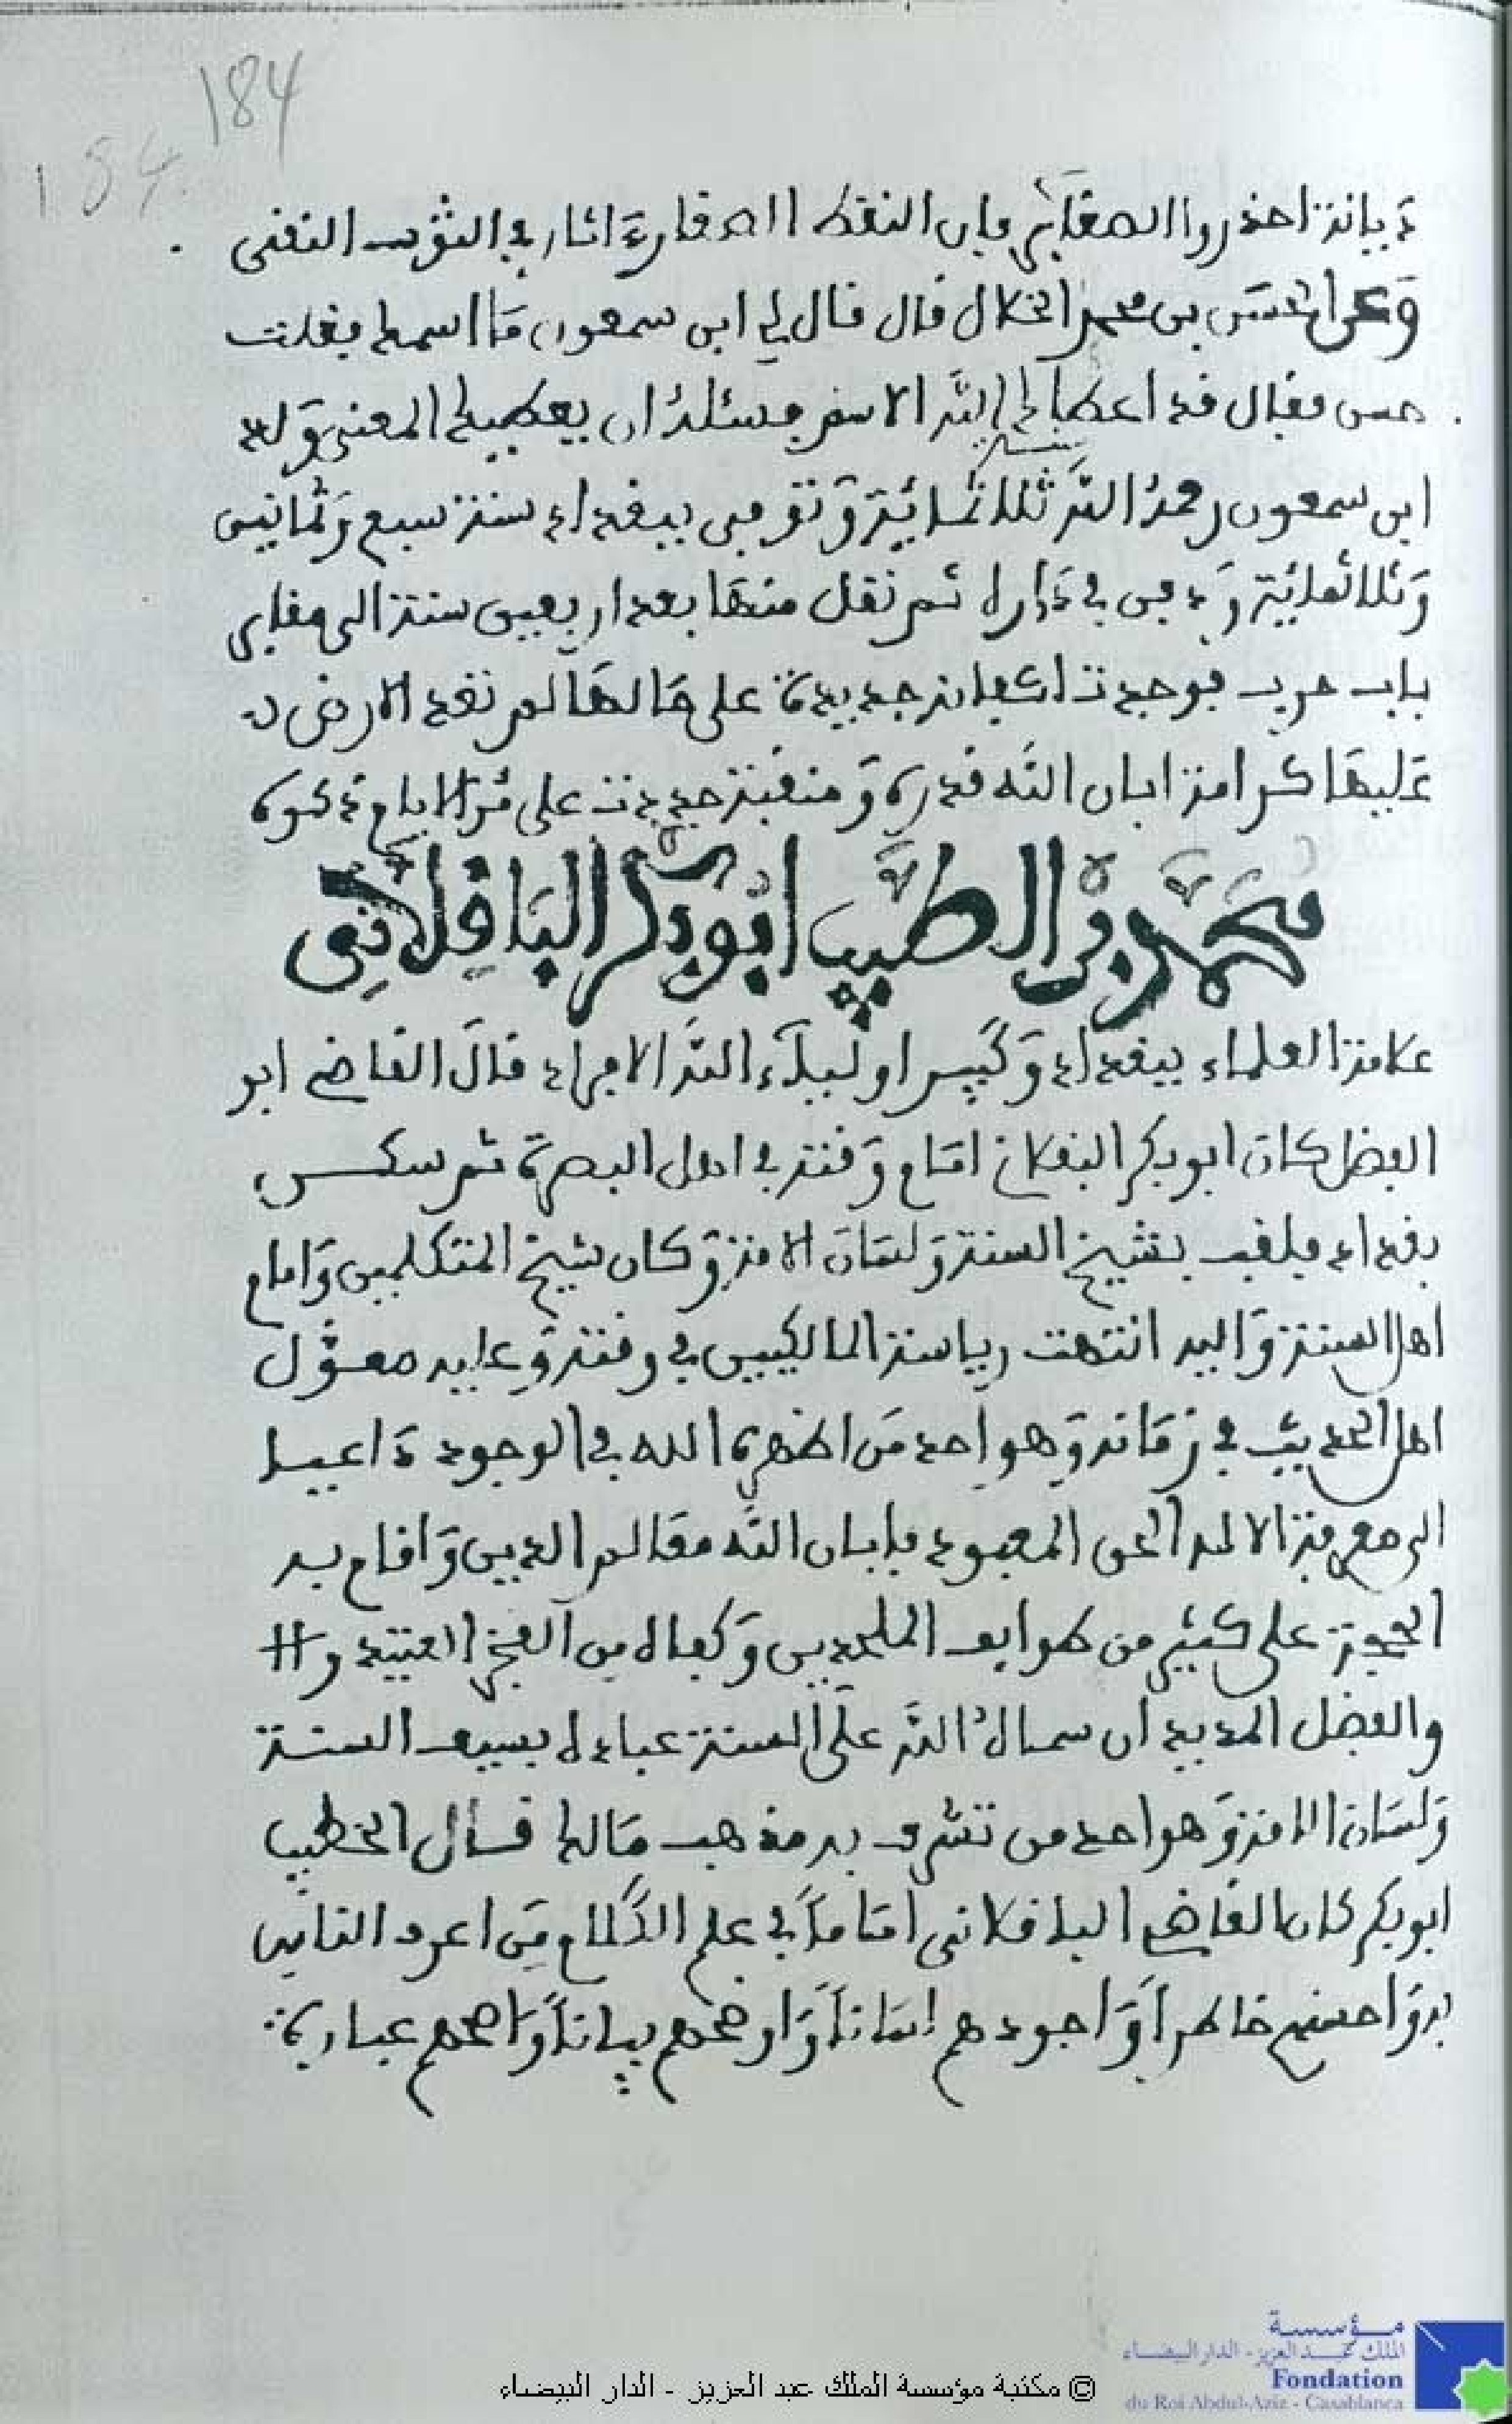 184
184
ديانة احذروا الصغاير فان النقط الصغار اثار في الثوب النقي
وعن الحسن بن محمد الخلال قال قال لي ابن سمعون ما اسمك فقلت
حسن فقال قد اعطاك الله الاسم فسئله ان يعطيك المعنى ولد
ابن سمعون رحمه الله سنة ثلاثمائة وتوفي ببغداد سنة سبع وثمانين
وثلاثمائة ودفن في داره ثم نقل منها بعد اربعين سنة الى مقابر
باب حرب فوجدت اكفانه جديدة على حالها لم تعد الارض
عليها كرامة ابان الله قدره ومنقبة جددت على مر الايام ذكره
محمد بن الطيب ابو بكر الباقلاني
علامة العلماء ببغداد وكبير اولياء الله الامجاد قال القاضي ابو
الفضل كان ابو بكر البقلاني امام وقته في اهل البصرة ثم سكن
بغداد يلقب بشيخ السنة ولسان الامة وكان شيخ المتكلمين وامام
اهل السنة واليه انتهت رياسة المالكيين في وقته وعليه معول
اهل الحديث في زمانه وهو احد من اظهره الله في الوجود داعيا
الى معرفة الاله الحق المعبود فابان الله معالم الدين واقام به
الحجة على كثير من طوايف الملحدين وكفاه من الفخر العتيد و
والفضل المديد ان سماه الله على السنة عباده بسيف السنة
ولسان الامة وهو احد من تشرف به مذهب مالك قال الخطيب
ابو بكر كان القاضي الباقلاني اماما في علم الكلام من اعرف الناس
به واحسنهم خاطرا واجودهم لسانا واوضحهم بيانا واصحهم عبارة
مؤسسة
الملك عبد العزيز - الدار البيضاء
Fondation
du Roi Abdul-Aziz - Casablanca
© مكتبة مؤسسة الملك عبد العزيز - الدار البيضاء